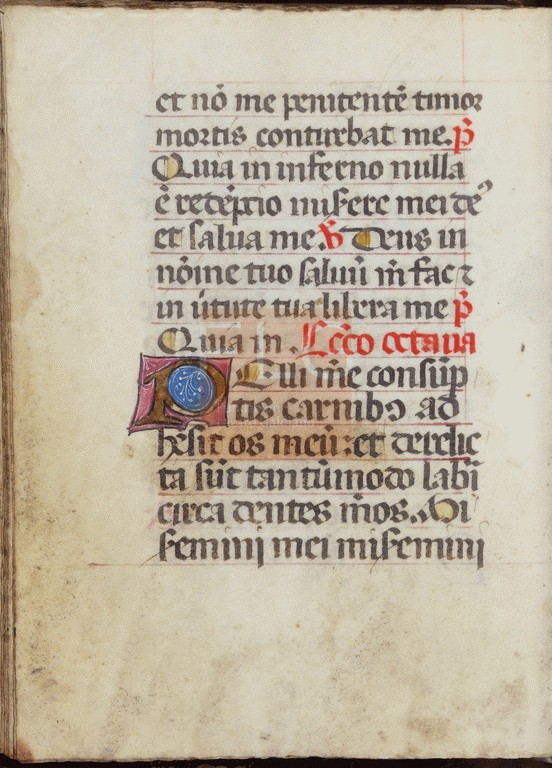 et nō me penitentē timor
mortis conturbat me. p̄
Quia in inferno nulla
ē redēpcio miserere mei de᾿
et salua me. v̄ Deus in
nōine tuo saluū m̄ fac ⁊
in ūtute tua libera me p̄
Quia in. Lcc̄o octaua
PElli mē consūp
tis carnibꝯ ad
hesit os meū: et derelic
ta sūt tantūmodo labi̅
circa dentes m̄os. Mi
semini mei misemini